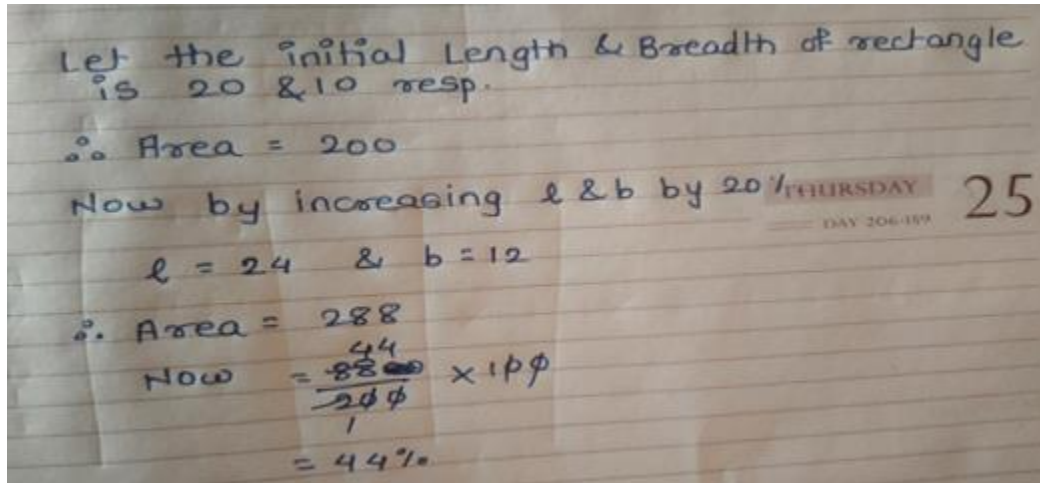 Let the initial Length & Breadth of rectangle
is 20 & 10 resp.
∴ Area = 200
Now by increasing l & b by 20%
THURSDAY 25
DAY 206-159
l = 24 & b = 12
∴ Area = 288
44
Now = 88 × 100
200
1
= 44%